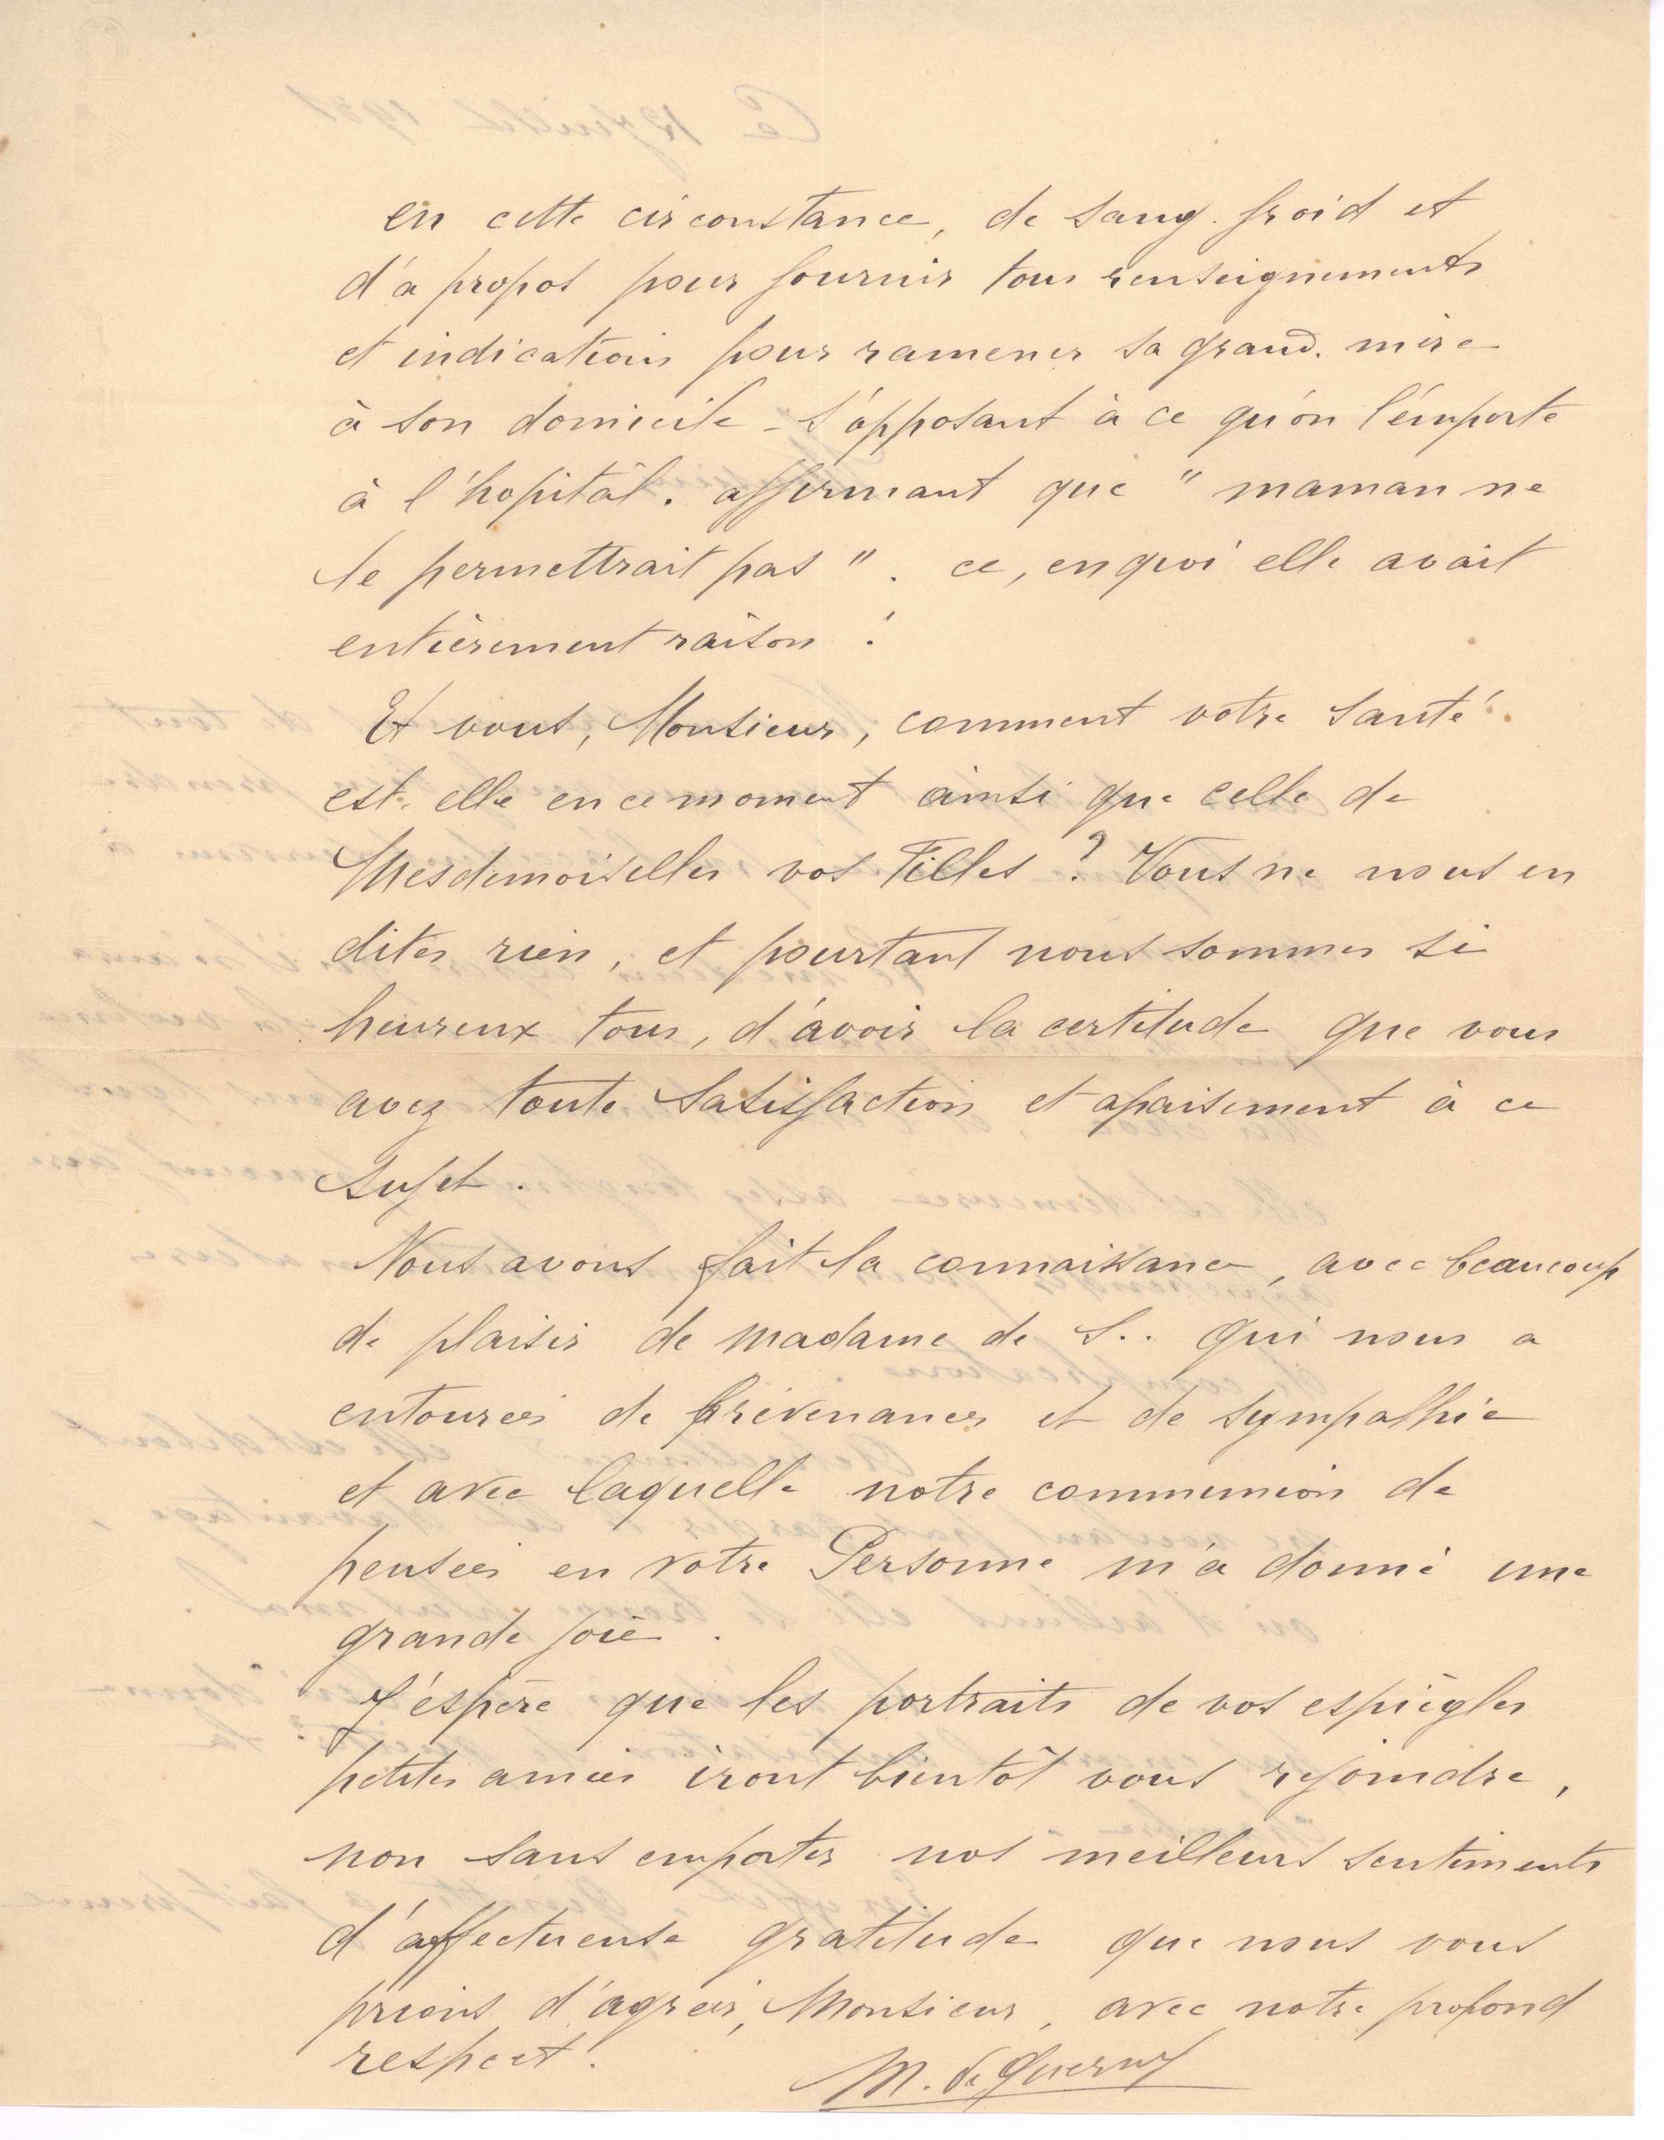 en cette circonstance, de sang-froid et
d'à propos pour fournir tous renseignements
et indications pour ramener sa grand-mère
à son domicile - s'opposant à ce qu'on l'emporte
à l'hopitâl. affirmant que "maman ne
le permettrait pas". ce, en quoi elle avait
entièrement raison !
Et vous, Monsieur, comment votre santé
est-elle en ce moment ainsi que celle de
Mesdemoiselles vos Filles ? Vous ne nous en
dites rien, et pourtant nous sommes si
heureux tous, d'avoir la certitude que vous
avez toute satisfaction et apaisement à ce
sujet.
Nous avons fait la connaissance, avec beaucoup
de plaisir de madame de S.. qui nous a
entourées de prévenances et de sympathie
et avec laquelle notre communion de
pensées en votre Personne m'a donné une
grande joie.
J'éspère que les portraits de vos espiègles
petites amies iront bientôt vous rejoindre,
non sans emporter nos meilleurs sentiments
d'affectueuse gratitude que nous vous
prions d'agréer, Monsieur, avec notre profond
respect.
M. de